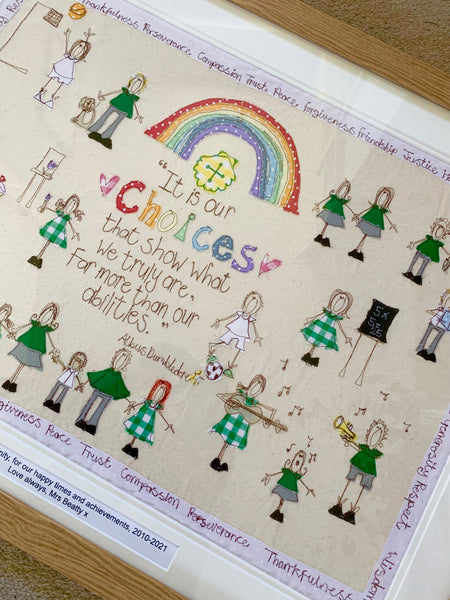 Thankfulness Perseverance Compassion Trust Peace Forgiveness Friendship Justice
"It is our
choices
that show what
we truly are,
far more than our
abilities."
Albus Dumbledore
5x
5=
25
Generosity Respect Wisdom
Forgiveness Peace Trust Compassion Perseverance Thankfulness
for our happy times and achievements, 2010-2021
Love always, Mrs Beatty x